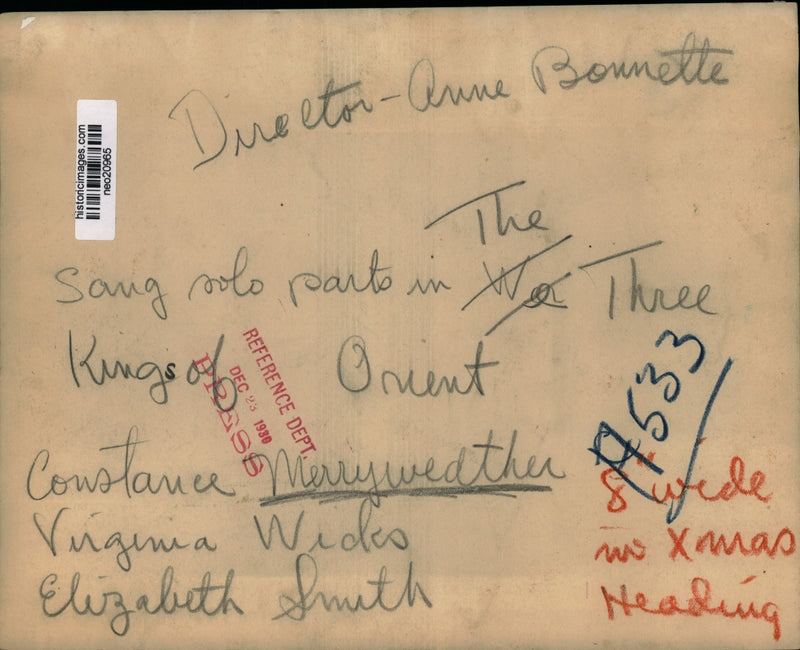 Director - Anne Bonnette
historicimages.com
neo20965
The
Sang solo parts in We Three
Kings of Orient
REFERENCE DEPT.
DEC 23 1930
PRESS
Constance Merryweather
Virginia Wicks
Elizabeth Smith
8" wide
no Xmas
Heading